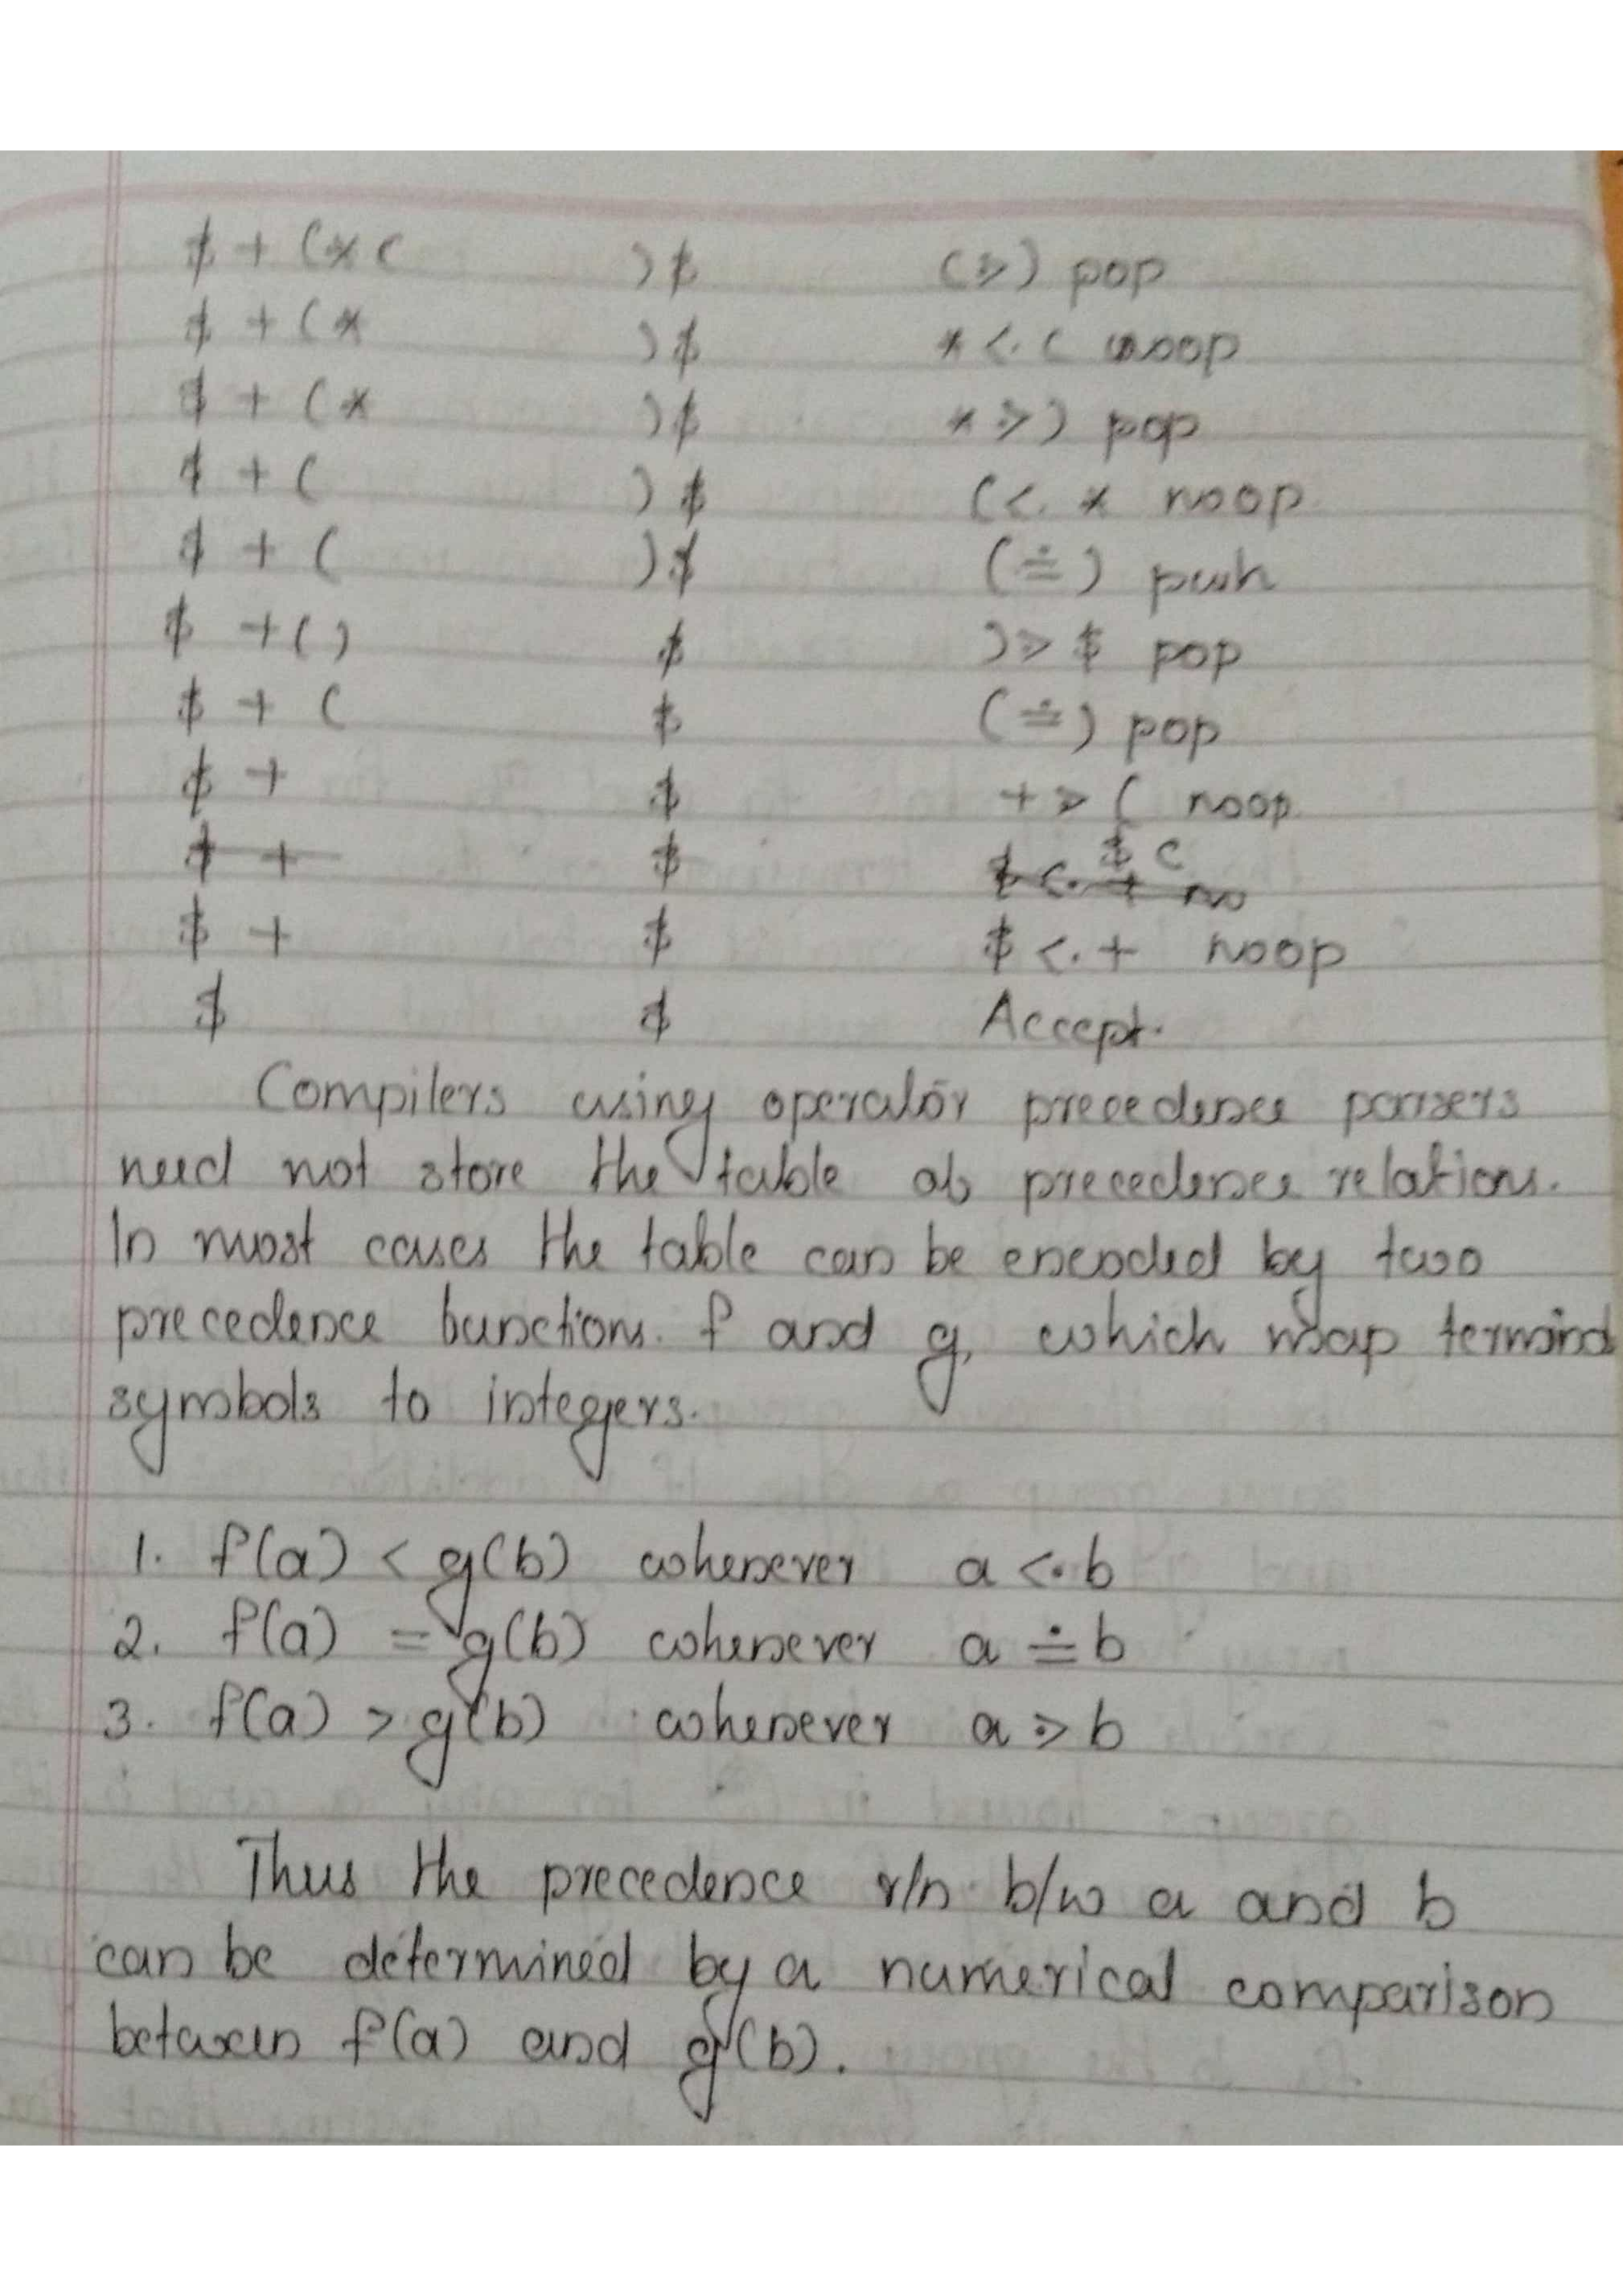 $ + (* ( )$ (⋗) pop
$ + (* )$ * <. ( noop
$ + (* )$ * ⋗) pop
$ + ( )$ (<. * noop
$ + ( )$ (≐) push
$ +() $ )⋗ $ pop
$ + ( $ (≐) pop
$ + $ +⋗ ( noop
$ + $ $ <. + no $ (
$ + $ $ <. + noop
$ $ Accept.
Compilers using operator precedence parsers
need not store the table of precedence relations.
In most cases the table can be encoded by two
precedence functions. f and g, which map terminal
symbols to integers.
1. f(a) < g(b) whenever a <. b
2. f(a) = g(b) whenever a ≐ b
3. f(a) > g(b) whenever a ⋗ b
Thus the precedence r/n b/w a and b
can be determined by a numerical comparison
between f(a) and g(b).